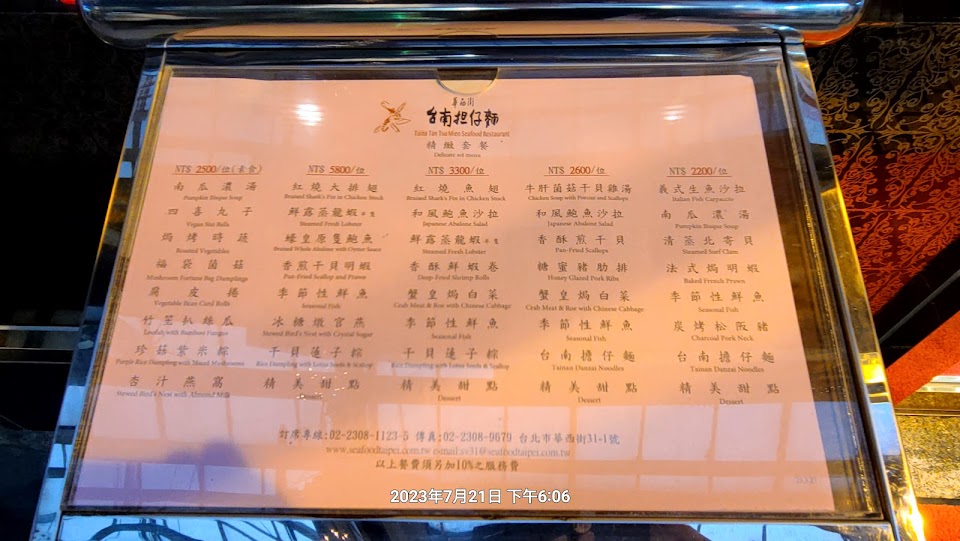 華西街
台南担仔麵
Taina Tan Tsu Mien Seafood Restaurant
精緻套餐
Delicate set menu
NT$ 2500/位(素食)
南瓜濃湯
Pumpkin Bisque Soup
四喜丸子
Vegan Stir Balls
焗烤時蔬
Roasted Vegetables
福袋菌菇
Mushroom Fortune Bag Dumplings
腐皮捲
Vegetable Bean Curd Rolls
竹笙扒絲瓜
Loofah with Bamboo Fungus
珍菇紫米粽
Purple Rice Dumpling with Mixed Mushrooms
杏汁燕窩
Stewed Bird's Nest with Almond Milk
NT$ 5800/位
紅燒大排翅
Braised Shark's Fin in Chicken Stock
鮮露蒸龍蝦半隻
Steamed Fresh Lobster
蠔皇原隻鮑魚
Braised Whole Abalone with Oyster Sauce
香煎干貝明蝦
Pan-Fried Scallop and Prawn
季節性鮮魚
Seasonal Fish
冰糖燉官燕
Stewed Bird's Nest with Crystal Sugar
干貝蓮子粽
Rice Dumpling with Lotus Seeds & Scallop
精美甜點
Dessert
NT$ 3300/位
紅燒魚翅
Braised Shark's Fin in Chicken Stock
和風鮑魚沙拉
Japanese Abalone Salad
鮮露蒸龍蝦半隻
Steamed Fresh Lobster
香酥鮮蝦卷
Deep-Fried Shrimp Rolls
蟹皇焗白菜
Crab Meat & Roe with Chinese Cabbage
季節性鮮魚
Seasonal Fish
干貝蓮子粽
Rice Dumpling with Lotus Seeds & Scallop
精美甜點
Dessert
NT$ 2600/位
牛肝菌菇干貝雞湯
Chicken Soup with Porcini and Scallops
和風鮑魚沙拉
Japanese Abalone Salad
香酥煎干貝
Pan-Fried Scallops
糖蜜豬肋排
Honey Glazed Pork Ribs
蟹皇焗白菜
Crab Meat & Roe with Chinese Cabbage
季節性鮮魚
Seasonal Fish
台南擔仔麵
Tainan Danzai Noodles
精美甜點
Dessert
NT$ 2200/位
義式生魚沙拉
Italian Fish Carpaccio
南瓜濃湯
Pumpkin Bisque Soup
清蒸北寄貝
Steamed Surf Clam
法式焗明蝦
Baked French Prawn
季節性鮮魚
Seasonal Fish
炭烤松阪豬
Charcoal Pork Neck
台南擔仔麵
Tainan Danzai Noodles
精美甜點
Dessert
訂席專線:02-2308-1123-5 傳真:02-2308-9679 台北市華西街31-1號
www.seafoodtaipei.com.tw e-mail:sv31@seafoodtaipei.com.tw
以上餐費須另加10%之服務費
2023年7月21日 下午6:06